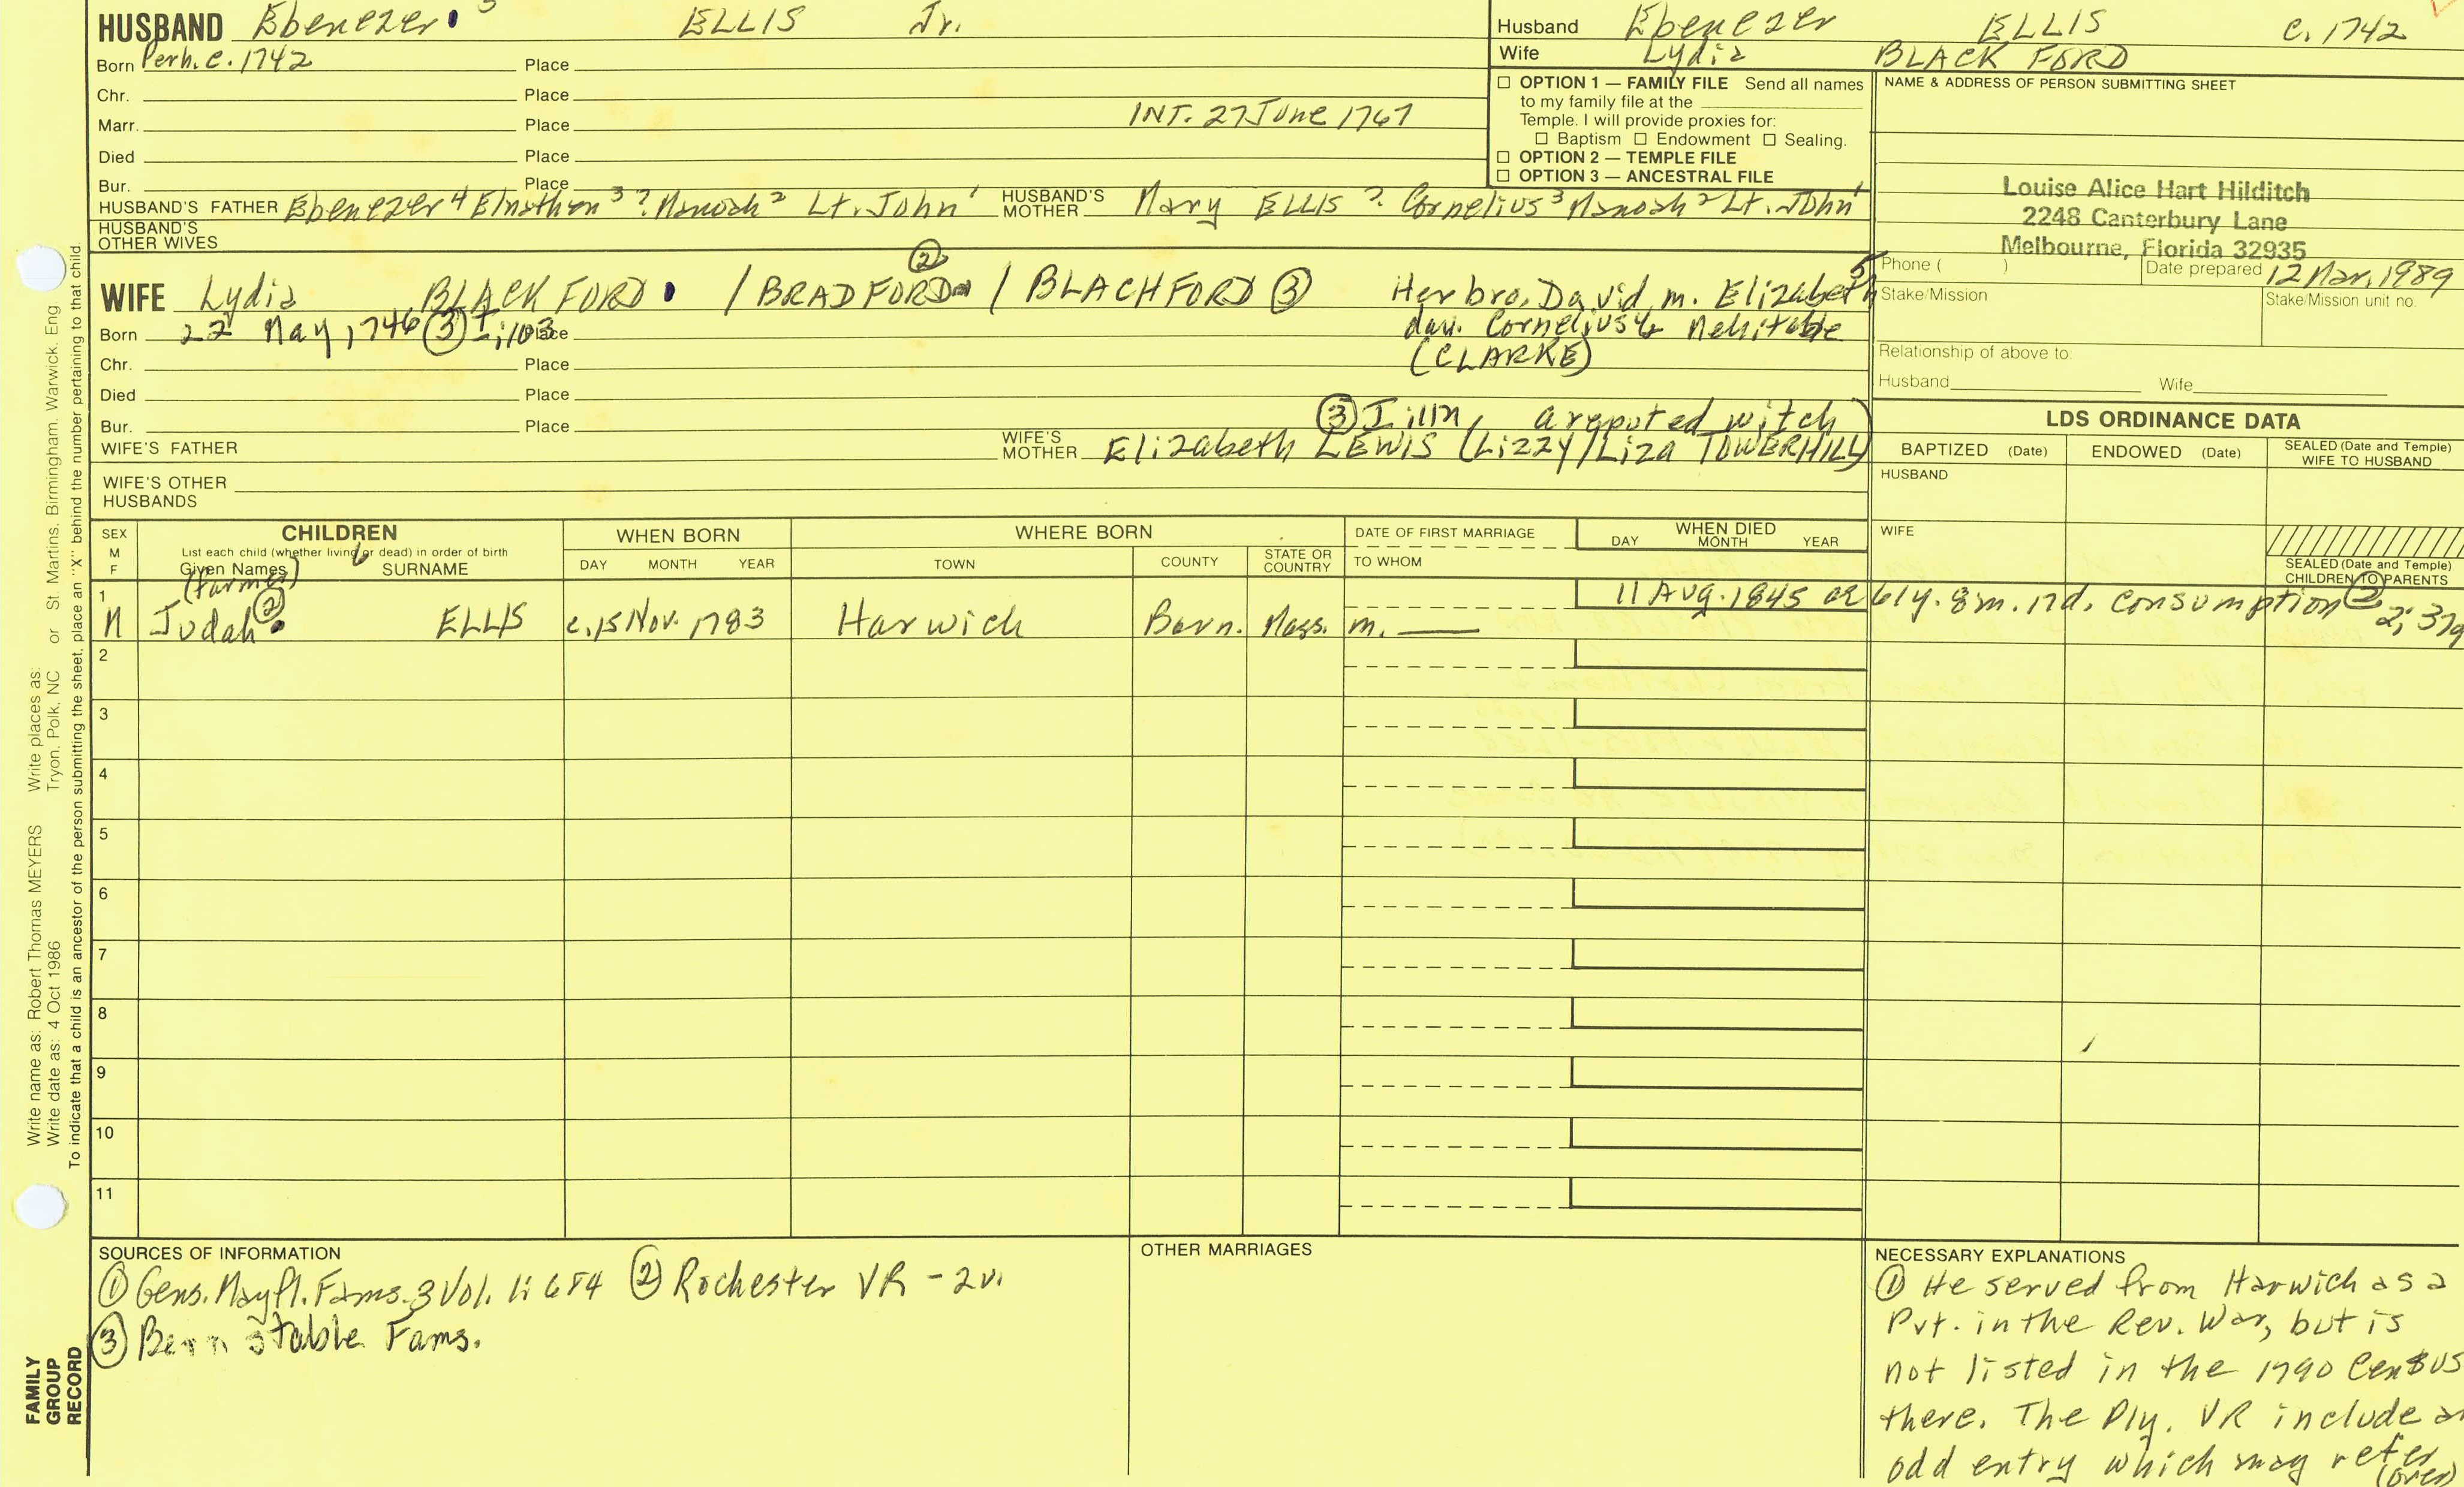 HUSBAND Ebenezer 5 ELLIS Jr.
Born Perh. c. 1742 Place
Chr. Place
Marr. Place INT. 27 June 1767
Died Place
Bur. Place
HUSBAND'S FATHER Ebenezer 4 Elnathan 3 ? Manoah 2 Lt. John 1 HUSBAND'S MOTHER Mary ELLIS ? Cornelius 3 Manoah 2 Lt. John 1
HUSBAND'S OTHER WIVES
Husband Ebenezer ELLIS c. 1742
Wife Lydia BLACK FORD
☐ OPTION 1 — FAMILY FILE Send all names
to my family file at the
Temple. I will provide proxies for:
☐ Baptism ☐ Endowment ☐ Sealing.
☐ OPTION 2 — TEMPLE FILE
☐ OPTION 3 — ANCESTRAL FILE
NAME & ADDRESS OF PERSON SUBMITTING SHEET
Louise Alice Hart Hilditch
2248 Canterbury Lane
Melbourne, Florida 32935
Phone ( ) Date prepared 12 Mar. 1989
Stake/Mission Stake/Mission unit no.
Relationship of above to:
Husband Wife
WIFE Lydia BLACK FORD / BRADFORD ② / BLACHFORD ③ Her bro. David m. Elizabeth 5
dau. Cornelius 4 & Mehitable
(CLARKE)
Born 22 May 1746 ③ Place
Chr. Place
Died Place
Bur. Place
③ a reputed witch
WIFE'S FATHER WIFE'S MOTHER Elizabeth LEWIS (Lizzy/Liza TOWERHILL)
WIFE'S OTHER HUSBANDS
LDS ORDINANCE DATA
BAPTIZED (Date) ENDOWED (Date) SEALED (Date and Temple) WIFE TO HUSBAND
HUSBAND
WIFE
SEALED (Date and Temple) CHILDREN TO PARENTS
SEX M F
CHILDREN
List each child (whether living or dead) in order of birth
Given Names SURNAME
WHEN BORN
DAY MONTH YEAR
WHERE BORN
TOWN COUNTY STATE OR COUNTRY
DATE OF FIRST MARRIAGE
TO WHOM
WHEN DIED
DAY MONTH YEAR
(farmer)
1 M Judah ② ELLIS c. 15 Nov. 1783 Harwich Barn. Mass. m. 11 Aug. 1845 ae 61y. 8m. 17d. consumption ②
2
3
4
5
6
7
8
9
10
11
SOURCES OF INFORMATION
① Gens. Mayfl. Fams. 3 Vol. 1: 684 ② Rochester VR - 2v.
③ Barnstable Fams.
OTHER MARRIAGES
NECESSARY EXPLANATIONS
① He served from Harwich as a
Pvt. in the Rev. War, but is
not listed in the 1790 Census
there. The Ply. VR include an
odd entry which may refer
(over)
Write name as: Robert Thomas MEYERS Write places as:
Write date as: 4 Oct 1986 Tryon, Polk, NC or St. Martins, Birmingham, Warwick, Eng
To indicate that a child is an ancestor of the person submitting the sheet, place an "X" behind the number pertaining to that child.
FAMILY
GROUP
RECORD